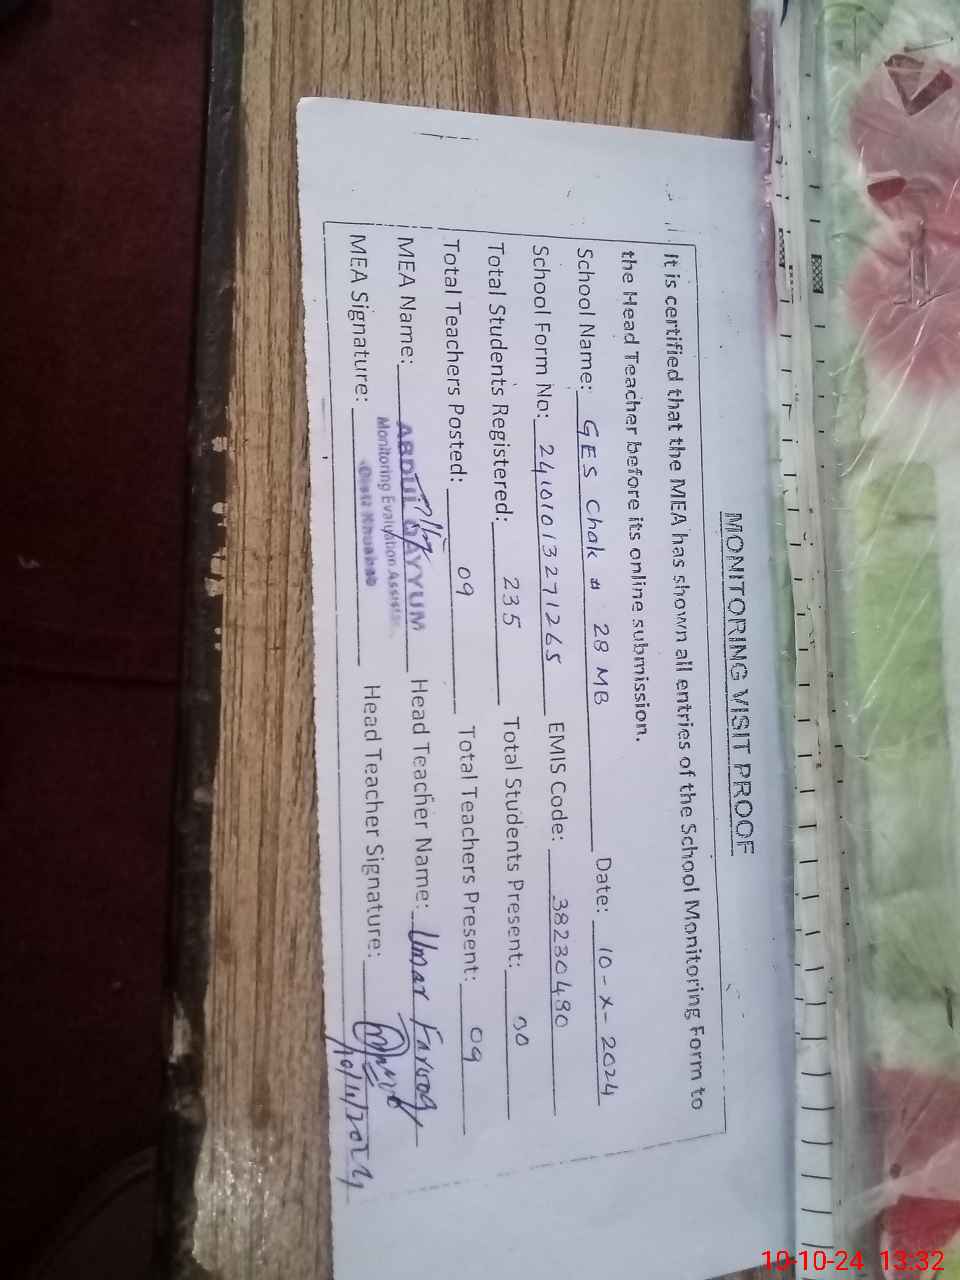 MONITORING VISIT PROOF
It is certified that the MEA has shown all entries of the School Monitoring Form to
the Head Teacher before its online submission.
School Name: GES Chak # 28 MB Date: 10-X-2024
School Form No: 24101013271265 EMIS Code: 38230480
Total Students Registered: 235 Total Students Present: 00
Total Teachers Posted: 09 Total Teachers Present: 09
MEA Name: ABDUL QAYYUM Head Teacher Name: Umar Farooq
Monitoring Evaluation Assistant
MEA Signature: Distt: Khushab Head Teacher Signature:
10-10-24 13:32